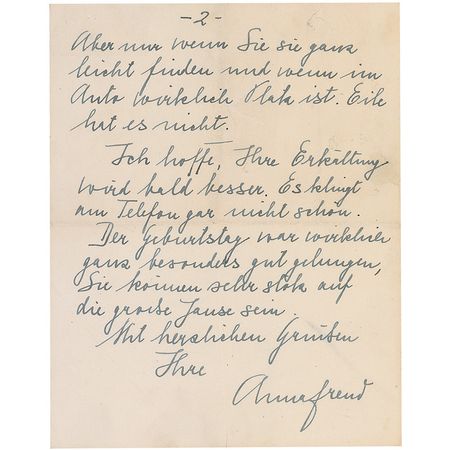 - 2 -
Aber nur wenn Sie sie ganz
leicht finden und wenn im
Auto wirklich Platz ist. Eile
hat es nicht.
Ich hoffe, Ihre Erkältung
wird bald besser. Es klingt
am Telefon gar nicht schön.
Der Geburtstag war wirklich
ganz besonders gut gelungen,
Sie können sehr stolz auf
die große Jause sein.
Mit herzlichen Grüßen
Ihre
Anna Freud